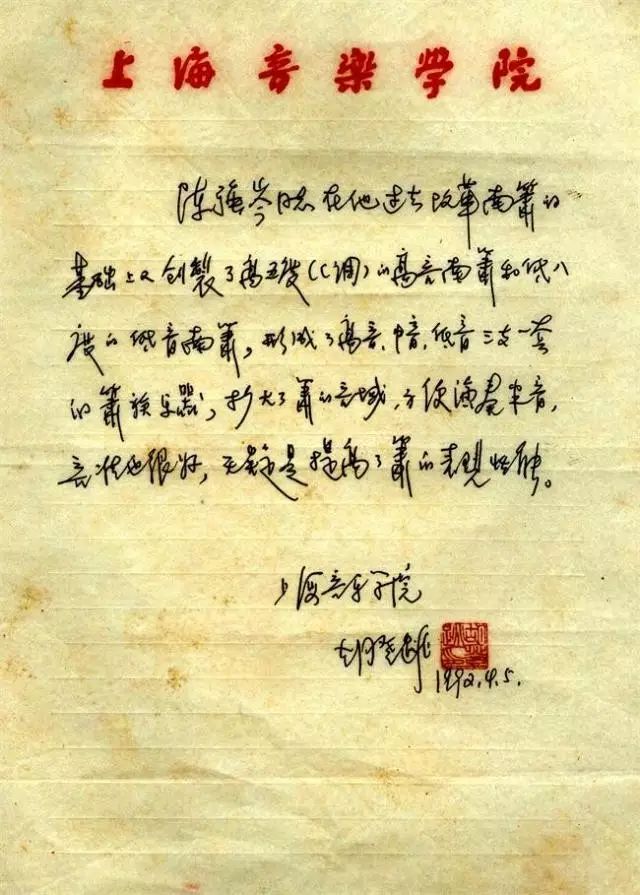 上海音樂学院
陈强岑同志在他过去改革南箫的
基础上又创製了高五度(C调)的高音南箫和低八
度的低音南箫，形成了高音、中音、低音三支一套
的箫族乐器，扩大了箫的音域，方便演奏半音，
音准也很好，无疑是提高了箫的表现性能。
上海音乐学院
胡登跳
1992.4.5.